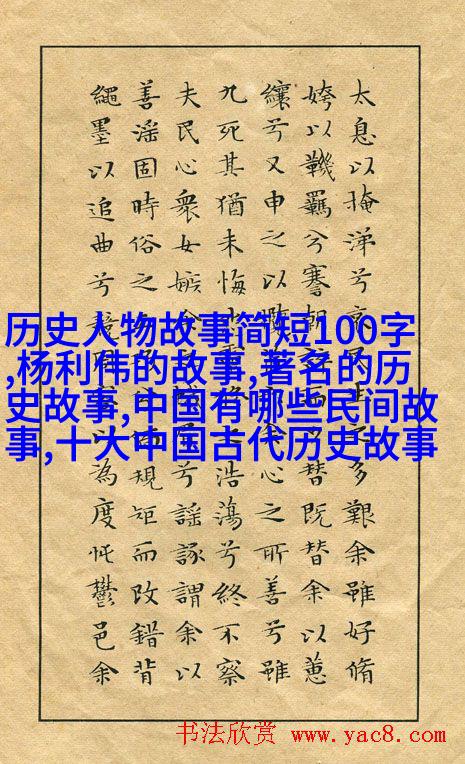 太息以掩涕兮哀多艱余雖好脩
姱以鞿羈兮謇朝替既替余以蕙
纕兮又申之以心之所善兮雖
九死其猶未悔浩蕩兮終不察
夫民心衆女嫉兮謠諑謂余以
善淫固時俗之規矩而改錯背
繩墨以追曲兮以為度忳鬱邑余
历史人物故事简短100字
,杨利伟的故事,著名的历
史故事,中国有哪些民间故
事,十大中国古代历史故事
书法欣赏 www.yac8.com